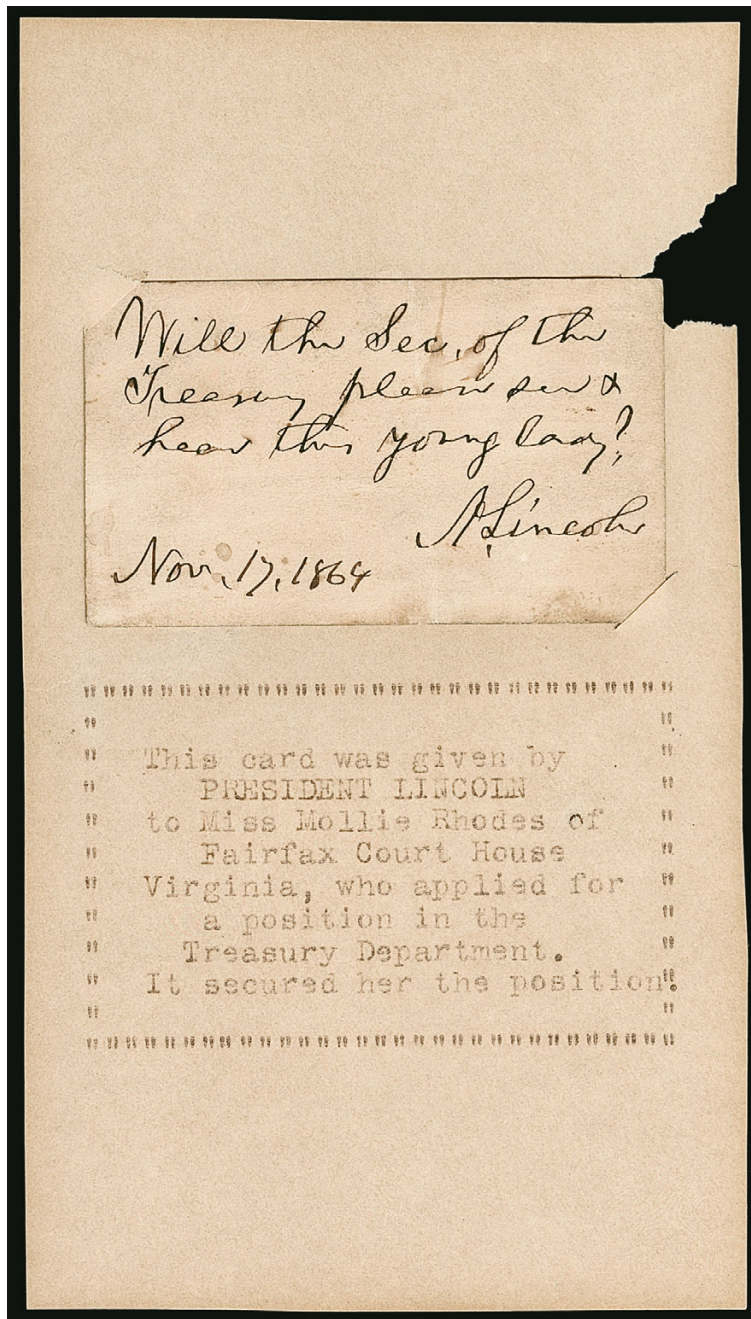 Will the Sec. of the
Treasury please see &
hear this young lady?
A. Lincoln
Nov. 17, 1864
This card was given by
PRESIDENT LINCOLN
to Miss Mollie Rhodes of
Fairfax Court House
Virginia, who applied for
a position in the
Treasury Department.
It secured her the position.